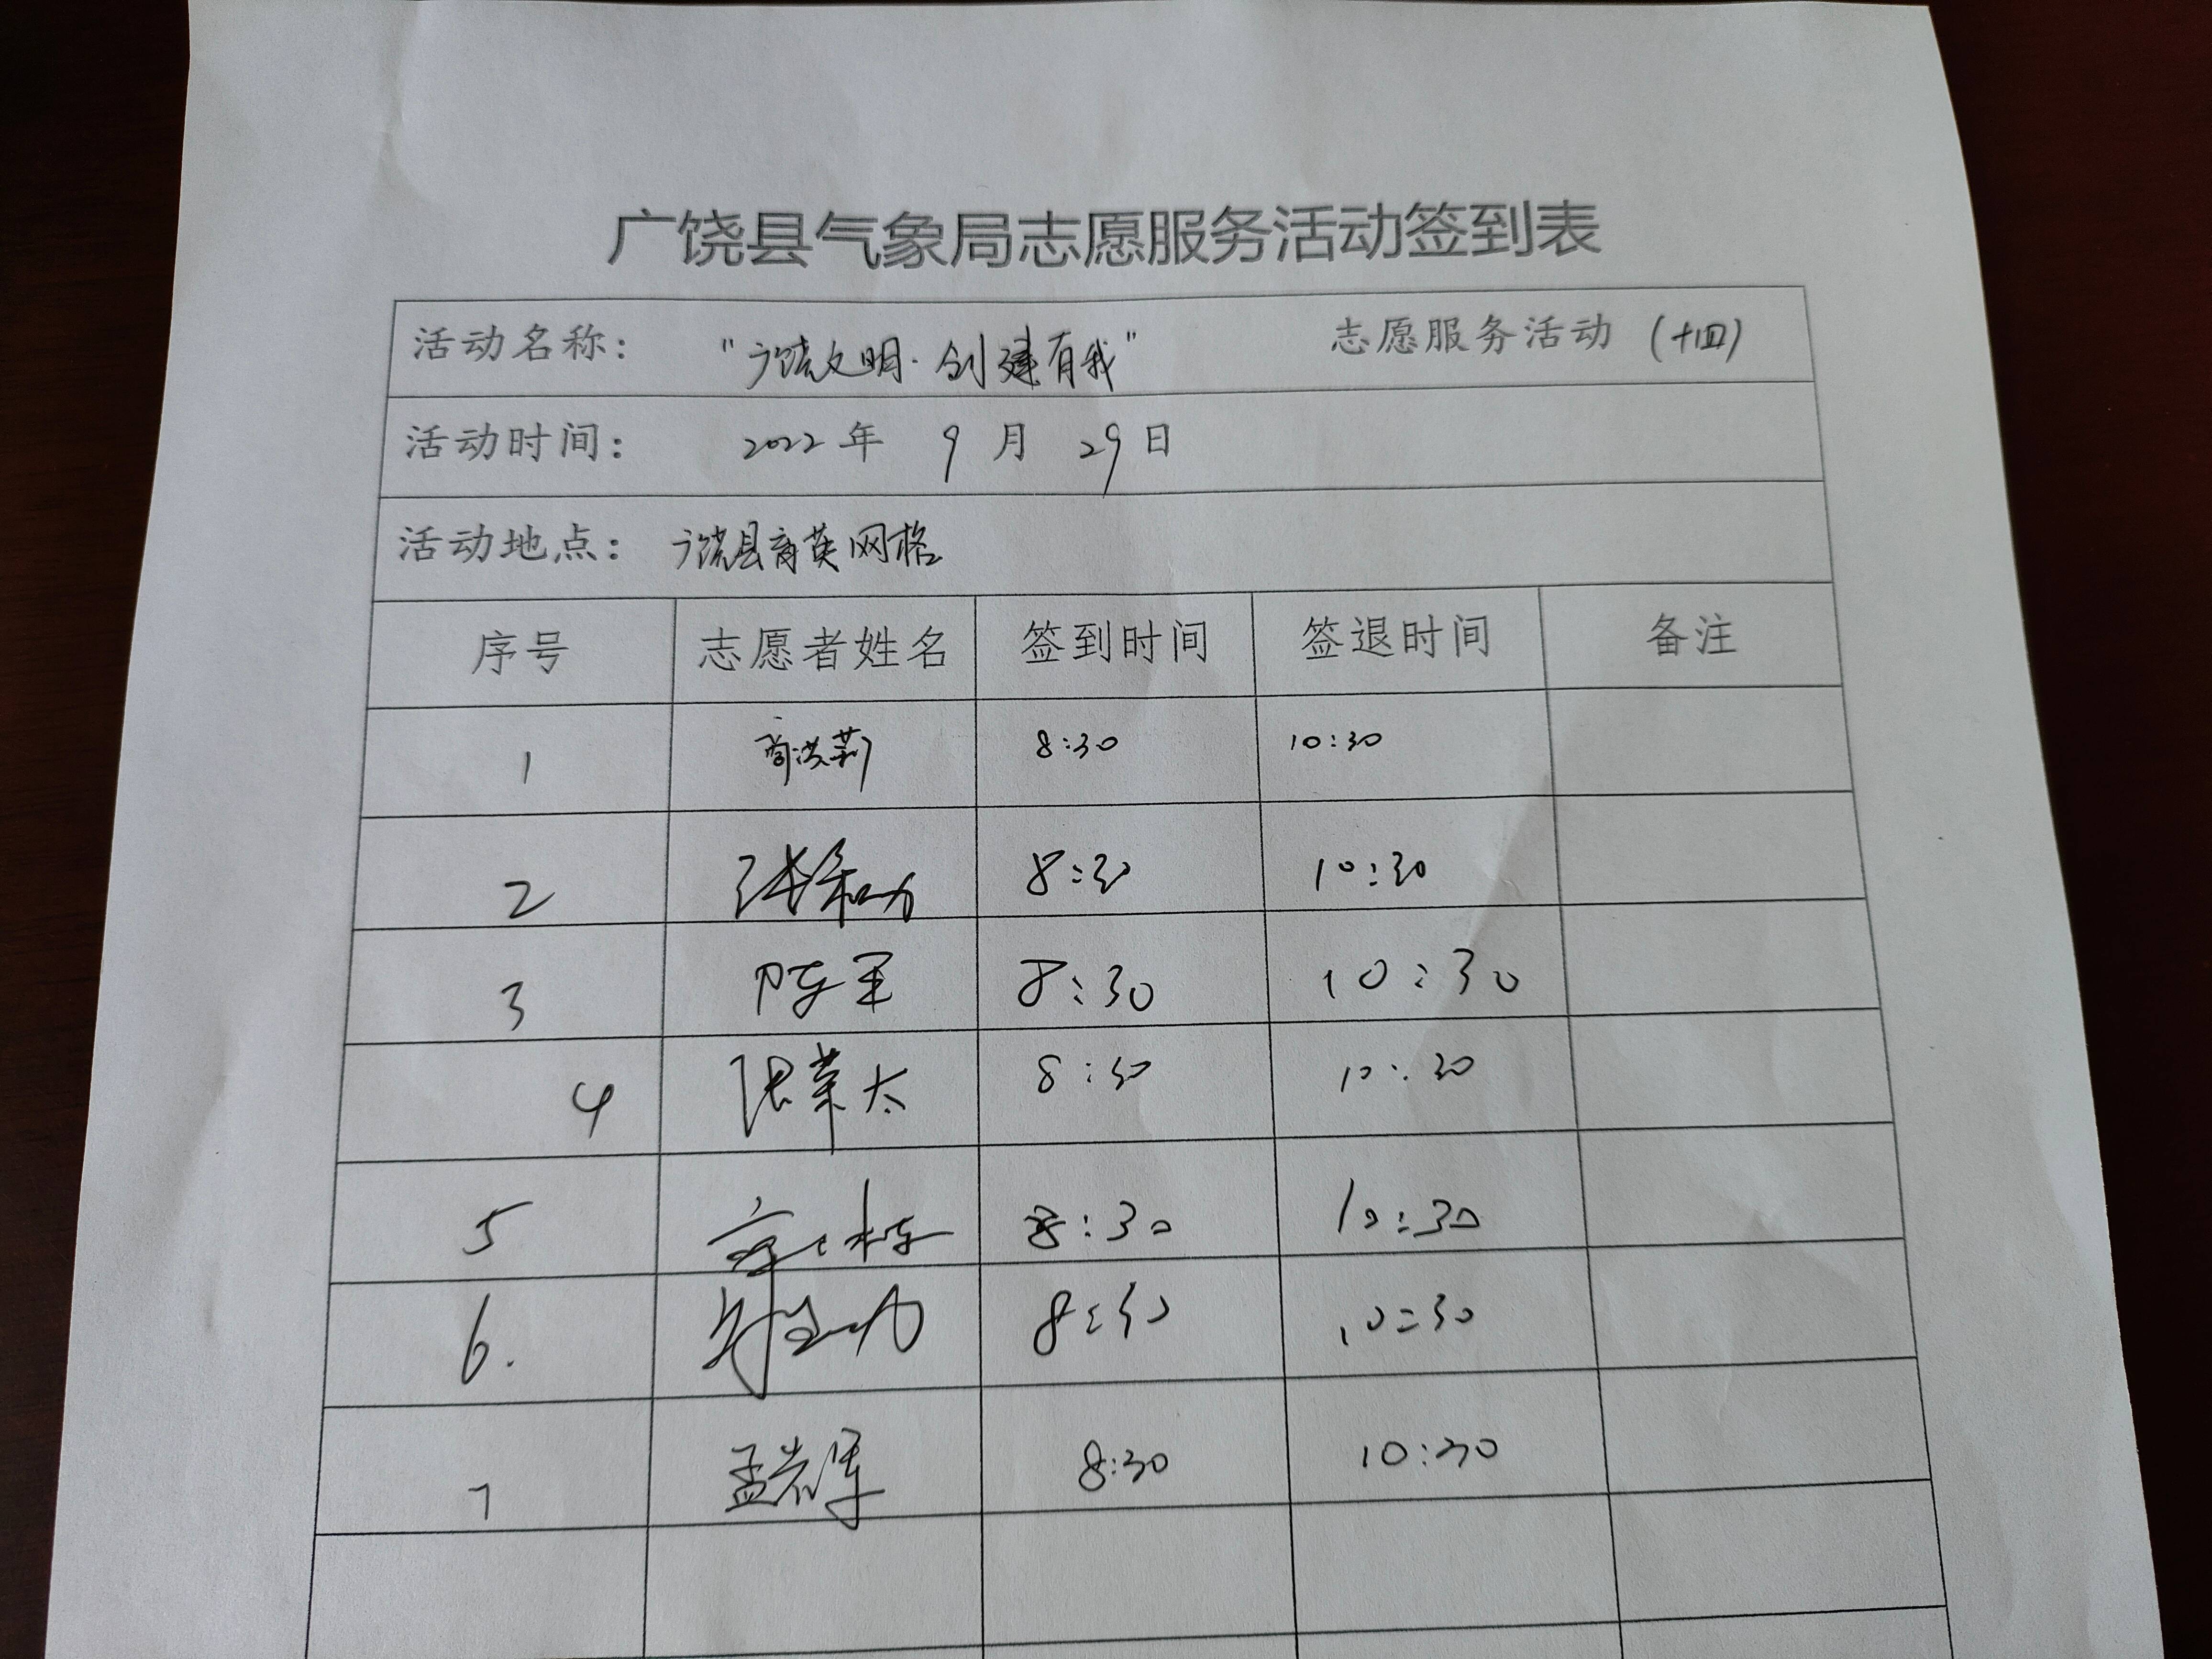 广饶县气象局志愿服务活动签到表
活动名称： "广饶文明·创建有我" 志愿服务活动（十四）
活动时间： 2022年 9月 29日
活动地点： 广饶县育英网格
序号 志愿者姓名 签到时间 签退时间 备注
1 商洪莉 8:30 10:30
2 8:30 10:30
3 陈军 8:30 10:30
4 张荣太 8:30 10:30
5 8:30 10:30
6. 8:30 10:30
7 孟岩军 8:30 10:30